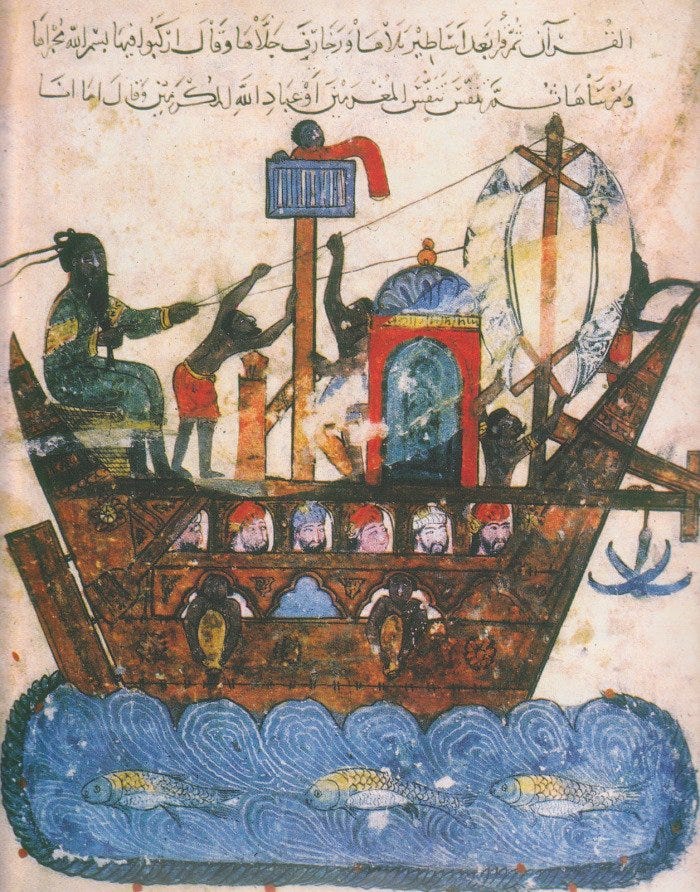 القرآن ثم قرأ بعد اساطير تلاها وزخارف جلاها وقال اركبوا فيها بسم الله مجراها
ومرساها ثم تنفس تنفس المغرمين أو عباد الله المكرمين وقال اما انا